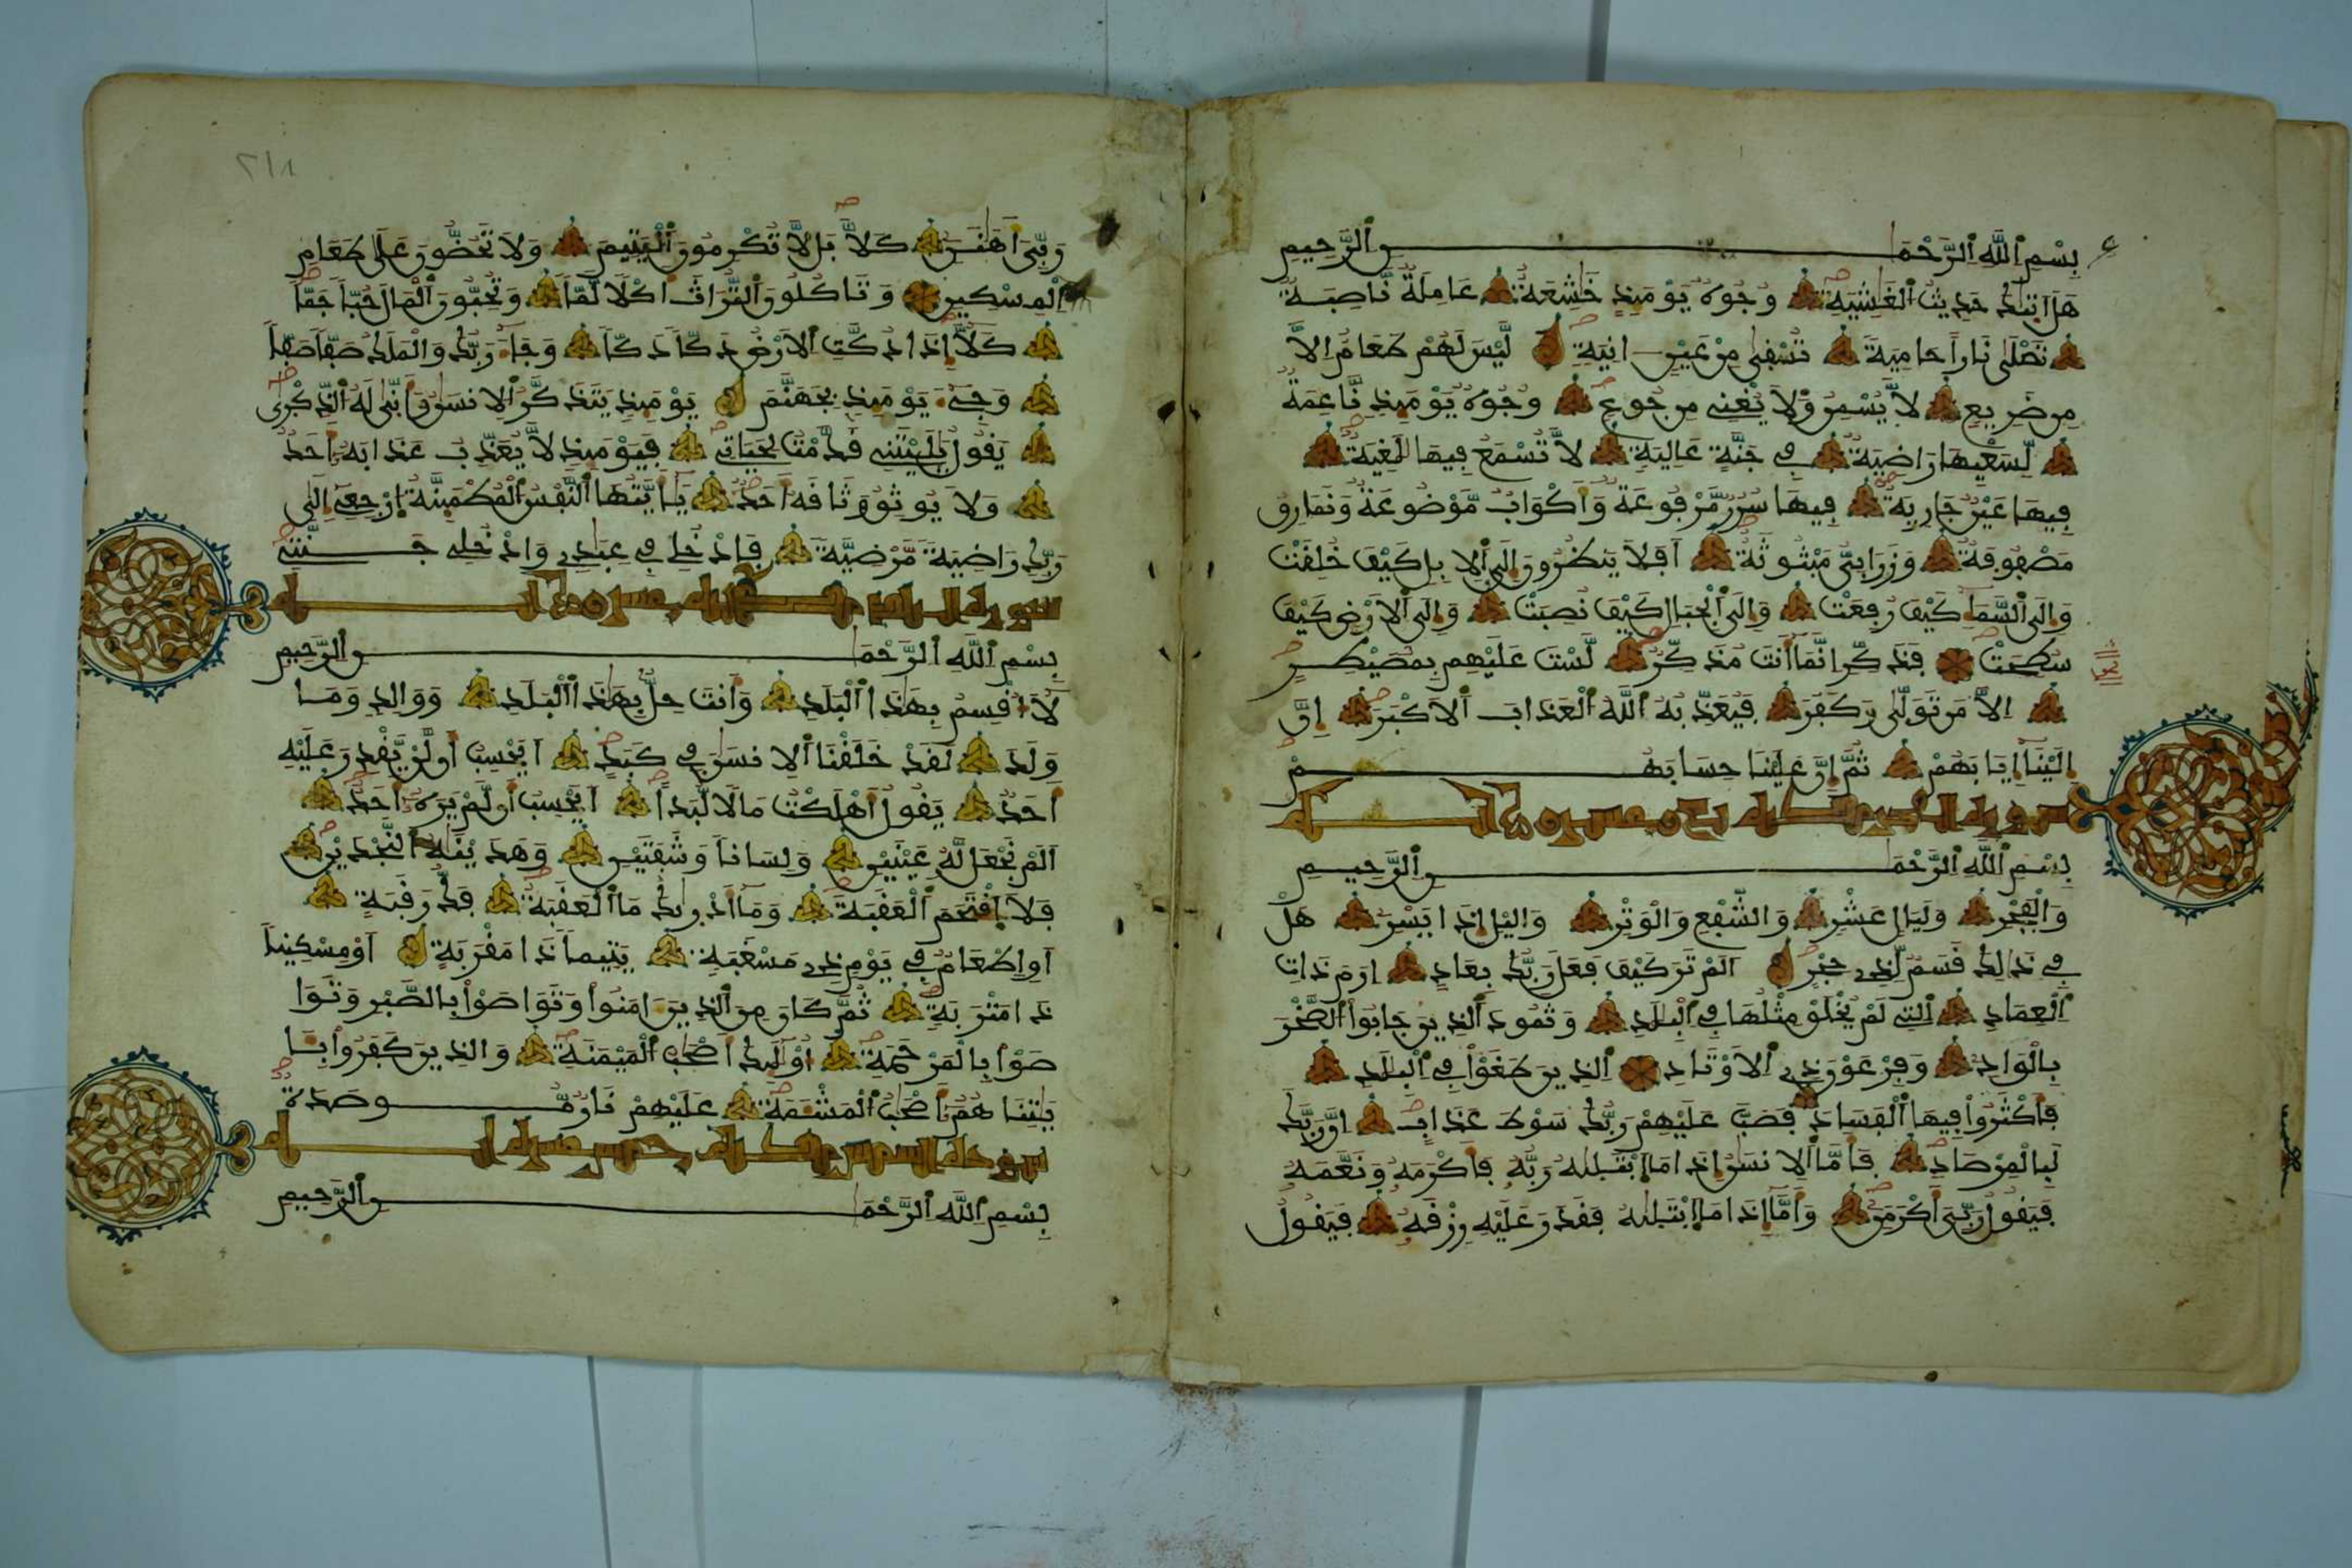 بِسْمِ اللَّهِ الرَّحْمَٰنِ الرَّحِيمِ
هَلَ اتَيٰكَ حَدِيثُ الْغَٰشِيَةِ وُجُوهٌ يَوْمَئِذٍ خَٰشِعَةٌ عَامِلَةٌ نَّاصِبَةٌ
تَصْلَىٰ نَاراً حَامِيَةً تُسْقَىٰ مِنْ عَيْنٍ انِيَةٍ لَّيْسَ لَهُمْ طَعَامٌ اِلَّا
مِن ضَرِيعٍ لَّا يُسْمِنُ وَلَا يُغْنِے مِن جُوعٍ وُجُوهٌ يَوْمَئِذٍ نَّاعِمَةٌ
لِّسَعْيِهَا رَاضِيَةٌ فِے جَنَّةٍ عَالِيَةٍ لَّا تُسْمَعُ فِيهَا لَٰغِيَةٌ
فِيهَا عَيْنٌ جَارِيَةٌ فِيهَا سُرُرٌ مَّرْفُوعَةٌ وَأَكْوَابٌ مَّوْضُوعَةٌ وَنَمَارِقُ
مَصْفُوفَةٌ وَزَرَابِيُّ مَبْثُوثَةٌ اَفَلَا يَنظُرُونَ إِلَى الِابِلِ كَيْفَ خُلِقَتْ
وَإِلَى السَّمَاءِ كَيْفَ رُفِعَتْ وَإِلَى الْجِبَالِ كَيْفَ نُصِبَتْ وَإِلَى الَارْضِ كَيْفَ
سُطِحَتْ فَذَكِّرِ انَّمَا أَنتَ مُذَكِّرٌ لَّسْتَ عَلَيْهِم بِمُصَيْطِرٍ
اِلَّا مَن تَوَلَّىٰ وَكَفَرَ فَيُعَذِّبُهُ اللَّهُ الْعَذَابَ الَاكْبَرَ اِنَّ
إِلَيْنَا إِيَابَهُمْ ثُمَّ إِنَّ عَلَيْنَا حِسَابَهُمْ
سورة الفجر مكية
بِسْمِ اللَّهِ الرَّحْمَٰنِ الرَّحِيمِ
وَالْفَجْرِ وَلَيَالٍ عَشْرٍ وَالشَّفْعِ وَالْوَتْرِ وَاليْلِ إِذَا يَسْرِ هَلْ
فِے ذَٰلِكَ قَسَمٌ لِّذِے حِجْرٍ اَلَمْ تَرَ كَيْفَ فَعَلَ رَبُّكَ بِعَادٍ اِرَمَ ذَاتِ
الْعِمَادِ الَّتِے لَمْ يُخْلَقْ مِثْلُهَا فِے الْبِلَٰدِ وَثَمُودَ الَّذِينَ جَابُوا الصَّخْرَ
بِالْوَادِ وَفِرْعَوْنَ ذِے الَاوْتَادِ الَّذِينَ طَغَوْا فِے الْبِلَٰدِ
فَأَكْثَرُوا فِيهَا الْفَسَادَ فَصَبَّ عَلَيْهِمْ رَبُّكَ سَوْطَ عَذَابٍ اِنَّ رَبَّكَ
لَبِالْمِرْصَادِ فَأَمَّا الِانسَٰنُ إِذَا مَا ابْتَلَيٰهُ رَبُّهُ فَأَكْرَمَهُ وَنَعَّمَهُ
فَيَقُولُ رَبِّيَ أَكْرَمَنِ وَأَمَّا إِذَا مَا ابْتَلَيٰهُ فَقَدَرَ عَلَيْهِ رِزْقَهُ فَيَقُولُ
٢١٨
رَبِّيَ أَهَٰنَنِ كَلَّا بَل لَّا تُكْرِمُونَ الْيَتِيمَ وَلَا تَحُضُّونَ عَلَىٰ طَعَامِ
الْمِسْكِينِ وَتَاكُلُونَ التُّرَاثَ أَكْلًا لَّمّاً وَتُحِبُّونَ الْمَالَ حُبّاً جَمّاً
كَلَّا إِذَا دُكَّتِ الَارْضُ دَكّاً دَكّاً وَجَاءَ رَبُّكَ وَالْمَلَكُ صَفّاً صَفّاً
وَجِاےءَ يَوْمَئِذٍ بِجَهَنَّمَ يَوْمَئِذٍ يَتَذَكَّرُ الِانسَٰنُ وَأَنَّىٰ لَهُ الذِّكْرَىٰ
يَقُولُ يَٰلَيْتَنِے قَدَّمْتُ لِحَيَاتِے فَيَوْمَئِذٍ لَّا يُعَذِّبُ عَذَابَهُ أَحَدٌ
وَلَا يُوثِقُ وَثَاقَهُ أَحَدٌ يَا أَيَّتُهَا النَّفْسُ الْمُطْمَئِنَّةُ ارْجِعِے إِلَىٰ
رَبِّكِ رَاضِيَةً مَّرْضِيَّةً فَادْخُلِے فِے عِبَٰدِے وَادْخُلِے جَنَّتِے
سورة البلد مكية عشرون اية
بِسْمِ اللَّهِ الرَّحْمَٰنِ الرَّحِيمِ
لَا أُقْسِمُ بِهَٰذَا الْبَلَدِ وَأَنتَ حِلٌّ بِهَٰذَا الْبَلَدِ وَوَالِدٍ وَمَا
وَلَدَ لَقَدْ خَلَقْنَا الِانسَٰنَ فِے كَبَدٍ اَيَحْسِبُ أَن لَّنْ يَّقْدِرَ عَلَيْهِ
أَحَدٌ يَقُولُ أَهْلَكْتُ مَالًا لُّبَداً اَيَحْسِبُ أَن لَّمْ يَرَهُ أَحَدٌ
اَلَمْ نَجْعَل لَّهُ عَيْنَيْنِ وَلِسَاناً وَشَفَتَيْنِ وَهَدَيْنَٰهُ النَّجْدَيْنِ
فَلَا اقْتَحَمَ الْعَقَبَةَ وَمَا أَدْرَيٰكَ مَا الْعَقَبَةُ فَكُّ رَقَبَةٍ
اَوِ اِطْعَامٌ فِے يَوْمٍ ذِے مَسْغَبَةٍ يَتِيماً ذَا مَقْرَبَةٍ اَوْ مِسْكِيناً
ذَا مَتْرَبَةٍ ثُمَّ كَانَ مِنَ الَّذِينَ ءَامَنُوا وَتَوَاصَوْا بِالصَّبْرِ وَتَوَا
صَوْا بِالْمَرْحَمَةِ أُوْلَٰئِكَ أَصْحَٰبُ الْمَيْمَنَةِ وَالَّذِينَ كَفَرُوا بِـَٔا
يَٰتِنَا هُمُ أَصْحَٰبُ الْمَشْـَٔمَةِ عَلَيْهِمْ نَارٌ مُّوصَدَةٌ
سورة الشمس مكية خمس عشرة اية
بِسْمِ اللَّهِ الرَّحْمَٰنِ الرَّحِيمِ